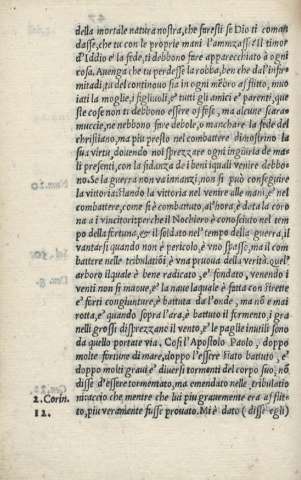 della mortale natura nostra, che faresti se Dio ti coman
dasse, che tu con le proprie mani l'amazassi? Il timor
d'Iddio e la fede, ti debbono fare apparecchiato à ogni
cosa. Auenga che tu perdesse la robba, ben che dal'infir-
mitadi, tu del continouo sia in ogni mēbro afflitto, muo
iati la moglie, i figliuoli, e' tutti gli amici e' parenti, que
ste cose non ti debbono essere offesi, ma alcune scara-
muccie, ne nebbono fare debole, o manchare la fede del
christiano, ma piu presto nel combattere dimostrino la
sua virtu, douendo noi sprezzare ogni ingiuria de ma
li presenti, con la fidanza de i beni iquali venire debbo-
no. Se la guerra non va innanzi, non si può conseguire
la vittoria: stando la vittoria nel venire alle mani, e' nel
combattere, come si è combattuto, al'hora, è data la coro
na a i vincitori: perche il Nochiero è conosciuto nel tem
po della fortuna, e' il soldato nel' tempo della guerra, il
vantarsi quando non è pericolo, è vno spasso, ma il com
battere nelle tribulatiōi, è vna pruoua della verità. quel'
arbore ilquale è bene radicato, e' fondato, venendo i
venti non si moue, e' la naue laquale è fatta con strette
e' forti congiunture, è battuta da l'onde, ma nō e mai
rotta, e' quando sopra l'ara, è battuto il formento, i gra
nelli grossi disprezzano il vento, e' le paglie inutili sono
da quello portate via. Cosi l'Apostolo Paolo, doppo
molte fortune di mare, doppo l'essere stato battuto, e'
doppo molti graui e' diuersi tormenti del corpo suo, nō
disse d'essere tormentato, ma emendato nelle tribulatio
2. Corin. ni: accio che mentre che lui piu grauemente era afflit-
12. to, piu veramente fusse prouato. Mi è dato (disse egli)